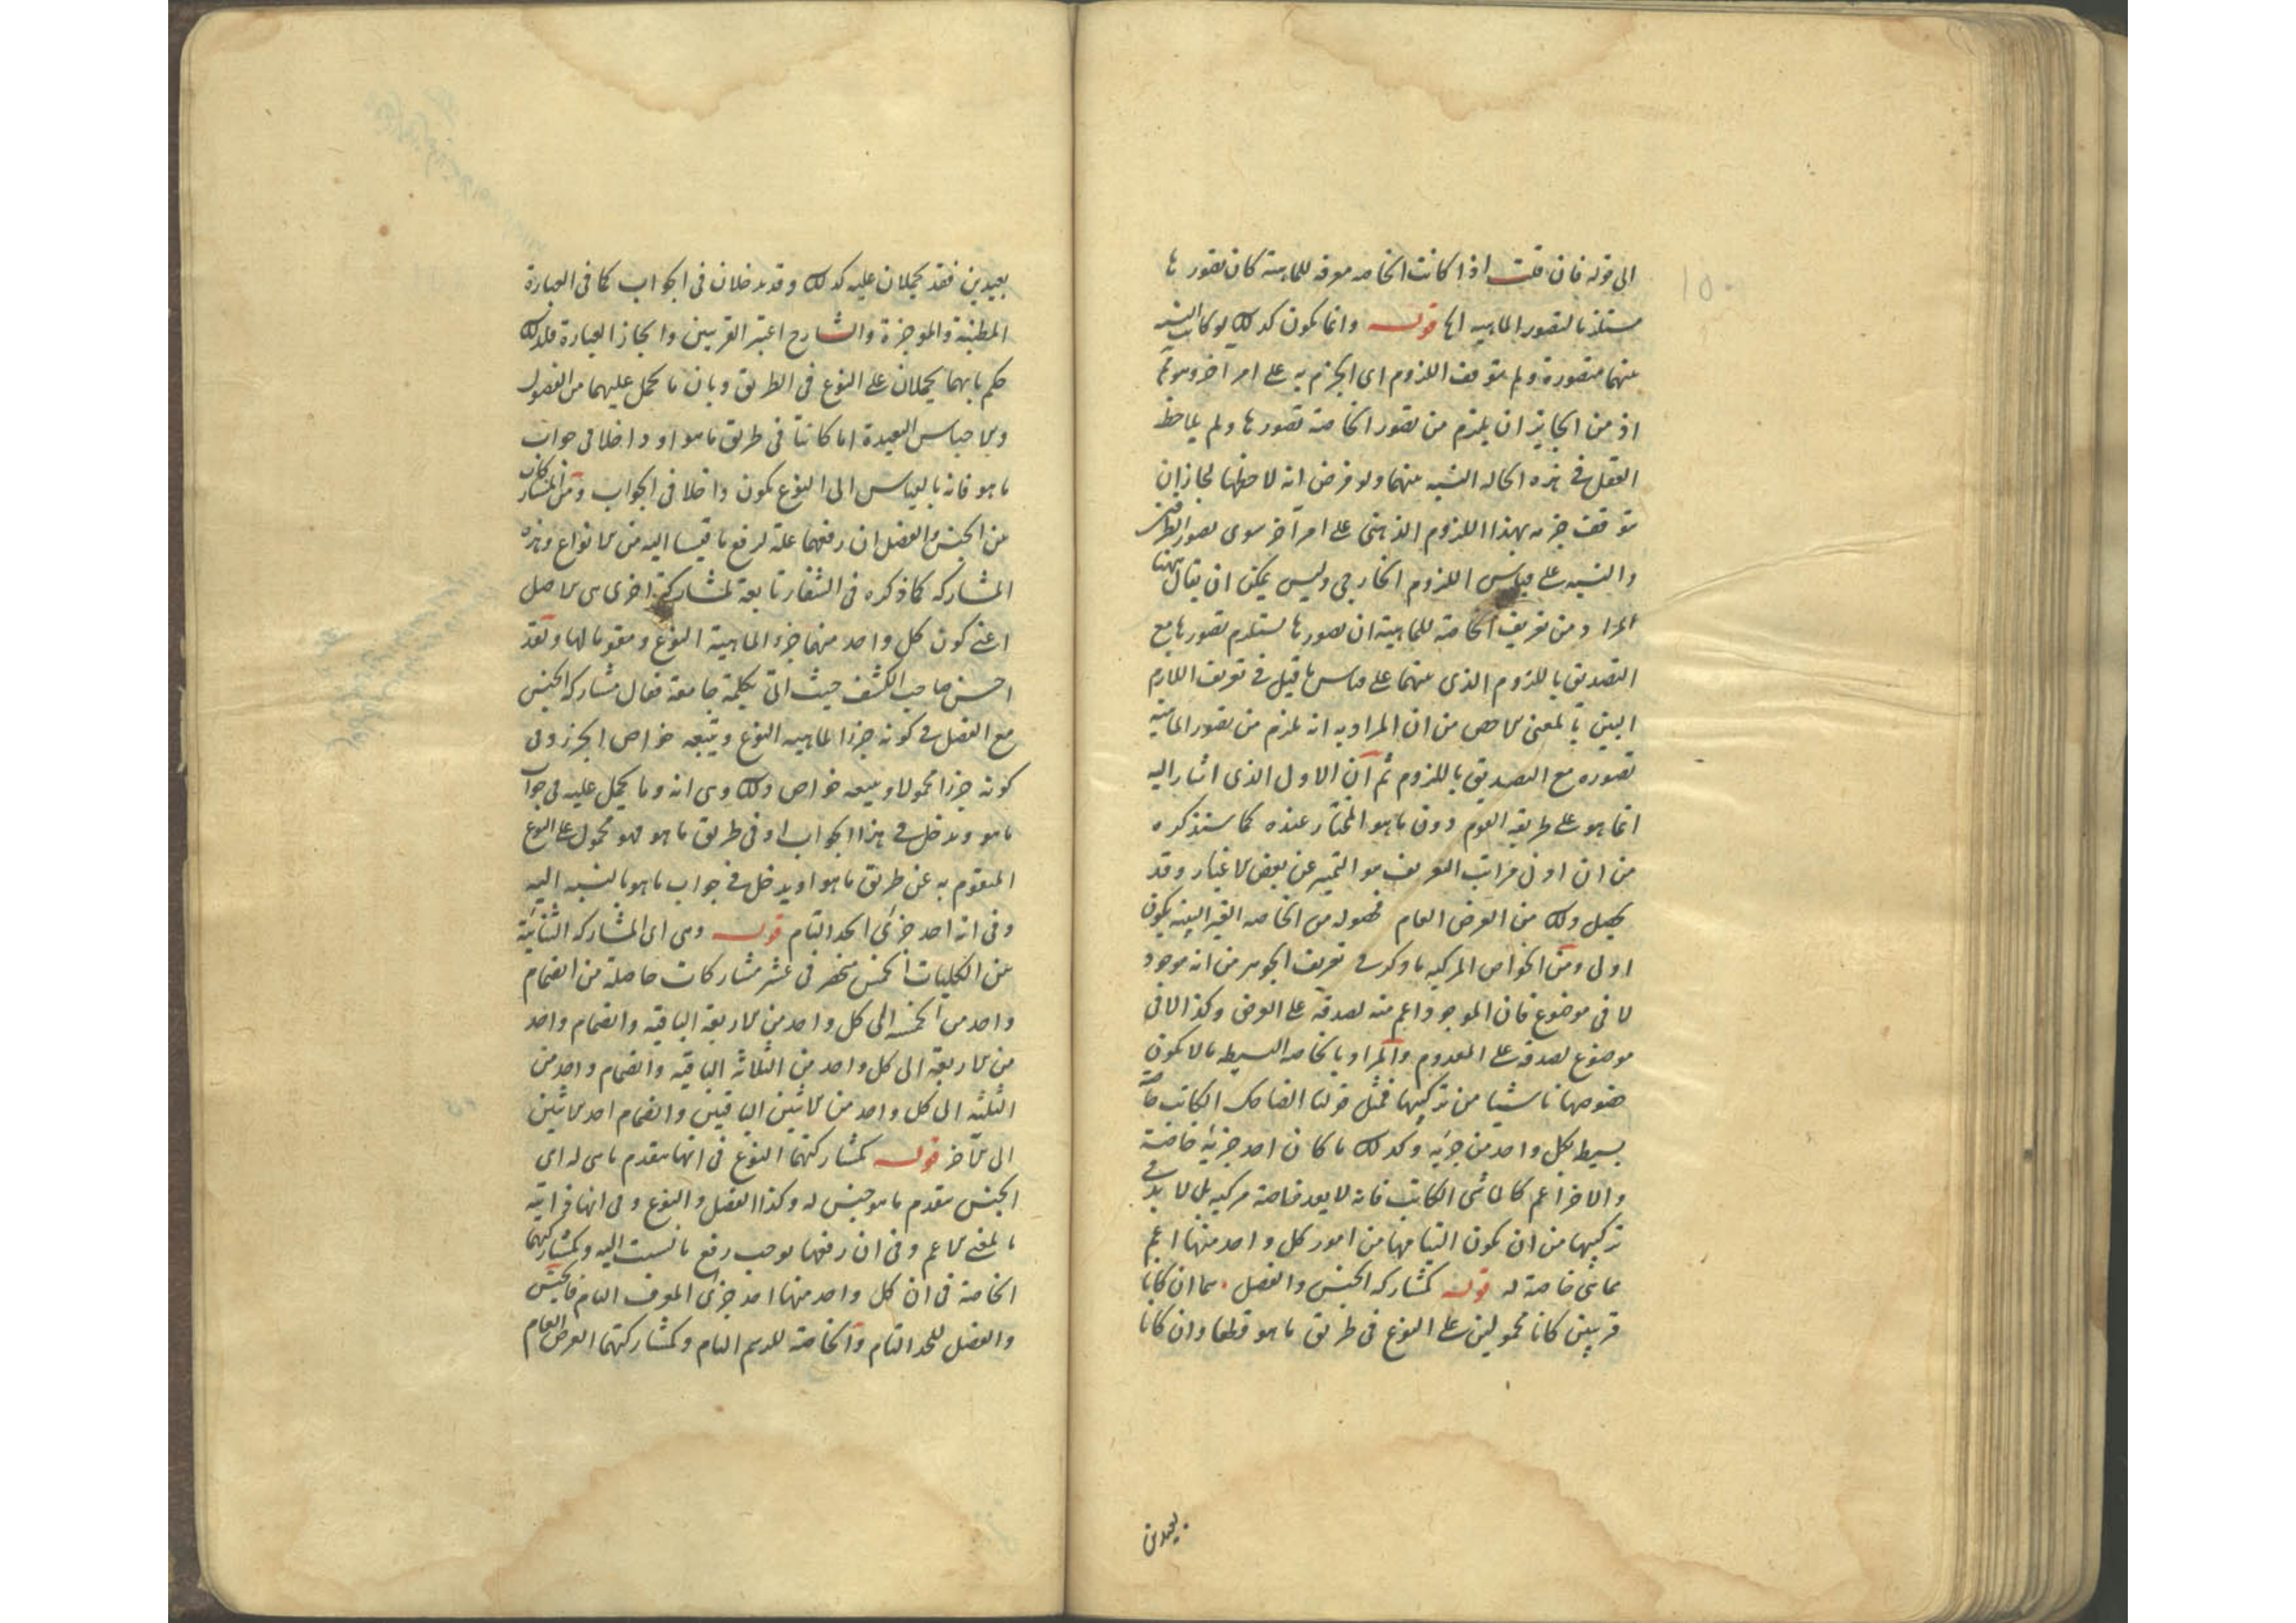 الى قوله فان قلت اذا كانت الخاصه معرفه للماهية كان تصورها
مستلزما لتصور الماهيه اه قوله وانما يكون كذلك لو كانت النسبه
بينهما متصورة ولم يتوقف اللزوم اى الجزم به على امر آخر وهو ثم
اذ من الجايز ان يلزم من تصور الخاصة تصورها ولم يلاحظ
العقل فى هذه الحاله النسبه بينهما ولو فرض انه لاحظها لجاز ان
يتوقف جزمه بهذا اللزوم الذهنى على امر آخر سوى تصور الطرفين
والنسبه على قياس اللزوم الخارجى وليس يمكن ان يقال ههنا
المراد من تعريف الخاصة للماهية ان تصورها يستلزم تصورها مع
التصديق باللزوم الذى بينهما على قياس ما قيل فى تعريف اللازم
البين بالمعنى الاخص من ان المراد به انه يلزم من تصور الماهية
تصوره مع التصديق باللزوم ثم ان الاول الذى اشار اليه
انما هو على طريقه القوم دون ما هو المختار عنده كما ستذكره
من ان ادنى مراتب التعريف هو التميز عن بعض الاغيار وقد
يحصل ذلك من العرض العام فحصوله من الخاصه الغير البينه يكون
اولى ومن الخواص المركبه ما ذكر فى تعريف الجوهر من انه موجود
لا فى موضوع فان الموجود اعم منه لصدقه على العرض وكذا لا فى
موضوع لصدقه على المعدوم والمراد بالخاصه البسيطه ما لا يكون
خصوصها ناشيا من تركيبها فمثل قولنا الضاحك الكاتب خاصة
بسيط بكل واحد من جزئيه وكذلك ما كان احد جزئيه خاصة
والاخر اعم كالماشى الكاتب فانه لا يعد خاصة مركبه بل لا بد فى
تركيبها من ان يكون التيامها من امور كل واحد منها اعم
مما هى خاصة له قوله كمشاركه الجنس والفصل هما ان كانا
قريبين كانا محمولين على النوع فى طريق ما هو قطعا وان كانا
بعيدين
بعيدين فقد يحملان عليه كذلك وقد يدخلان فى الجواب كما فى العبارة
المطنبة والموجزة والشارح اعتبر القربين وايجاز العبارة فلذلك
حكم بانهما يحملان على النوع فى الطريق وبان ما يحمل عليهما من الفصول
والاجناس البعيدة اما كانتا فى طريق ما هو او داخلا فى جواب
ما هو فانه بالقياس الى النوع يكون داخلا فى الجواب ومن المشاركات
بين الجنس والفصل ان رفعهما علة لرفع ما قيسا اليه من الانواع وهذه
المشاركه كما ذكره فى الشفا تابعة لمشاركة اخرى هى الاصل
اعنى كون كل واحد منهما جزء الماهية النوع ومقوما لها ولقد
احسن صاحب الكشف حيث اتى بكلمة جامعة فقال مشاركه الجنس
مع الفصل فى كونه جزءا لماهيه النوع ويتبعه خواص الجزء وفى
كونه جزءا محمولا ويتبعه خواص ذلك وهى انه وما يحمل عليه فى جواب
ما هو ويدخل فى هذا الجواب او فى طريق ما هو فهو محمول على النوع
المتقوم به عن طريق ما هو او يدخل فى جواب ما هو بالنسبه اليه
وفى انه احد جزئى الحد التام قوله وهى اى المشاركه الثنائية
بين الكليات الخمس منحصر فى عشر مشاركات حاصلة من انضمام
واحد من الخمسه الى كل واحد من الاربعة الباقيه وانضمام واحد
من الاربعة الى كل واحد من الثلاثه الباقيه وانضمام واحد من
الثلثه الى كل واحد من الاثنين الباقيين وانضمام احد الاثنين
الى الآخر قوله كمشاركتهما النوع فى انها يتقدم ما هى له اى
الجنس يتقدم ما هو جنس له وكذا الفصل والنوع وفى انها ذاتية
بالمعنى الاعم وفى ان رفعها يوجب رفع ما نسبت اليه وكمشاركتهما
الخاصة فى ان كل واحد منها احد جزئى المعرف التام فالجنس
والفصل للحد التام والخاصة للرسم التام وكمشاركتهما العرض العام